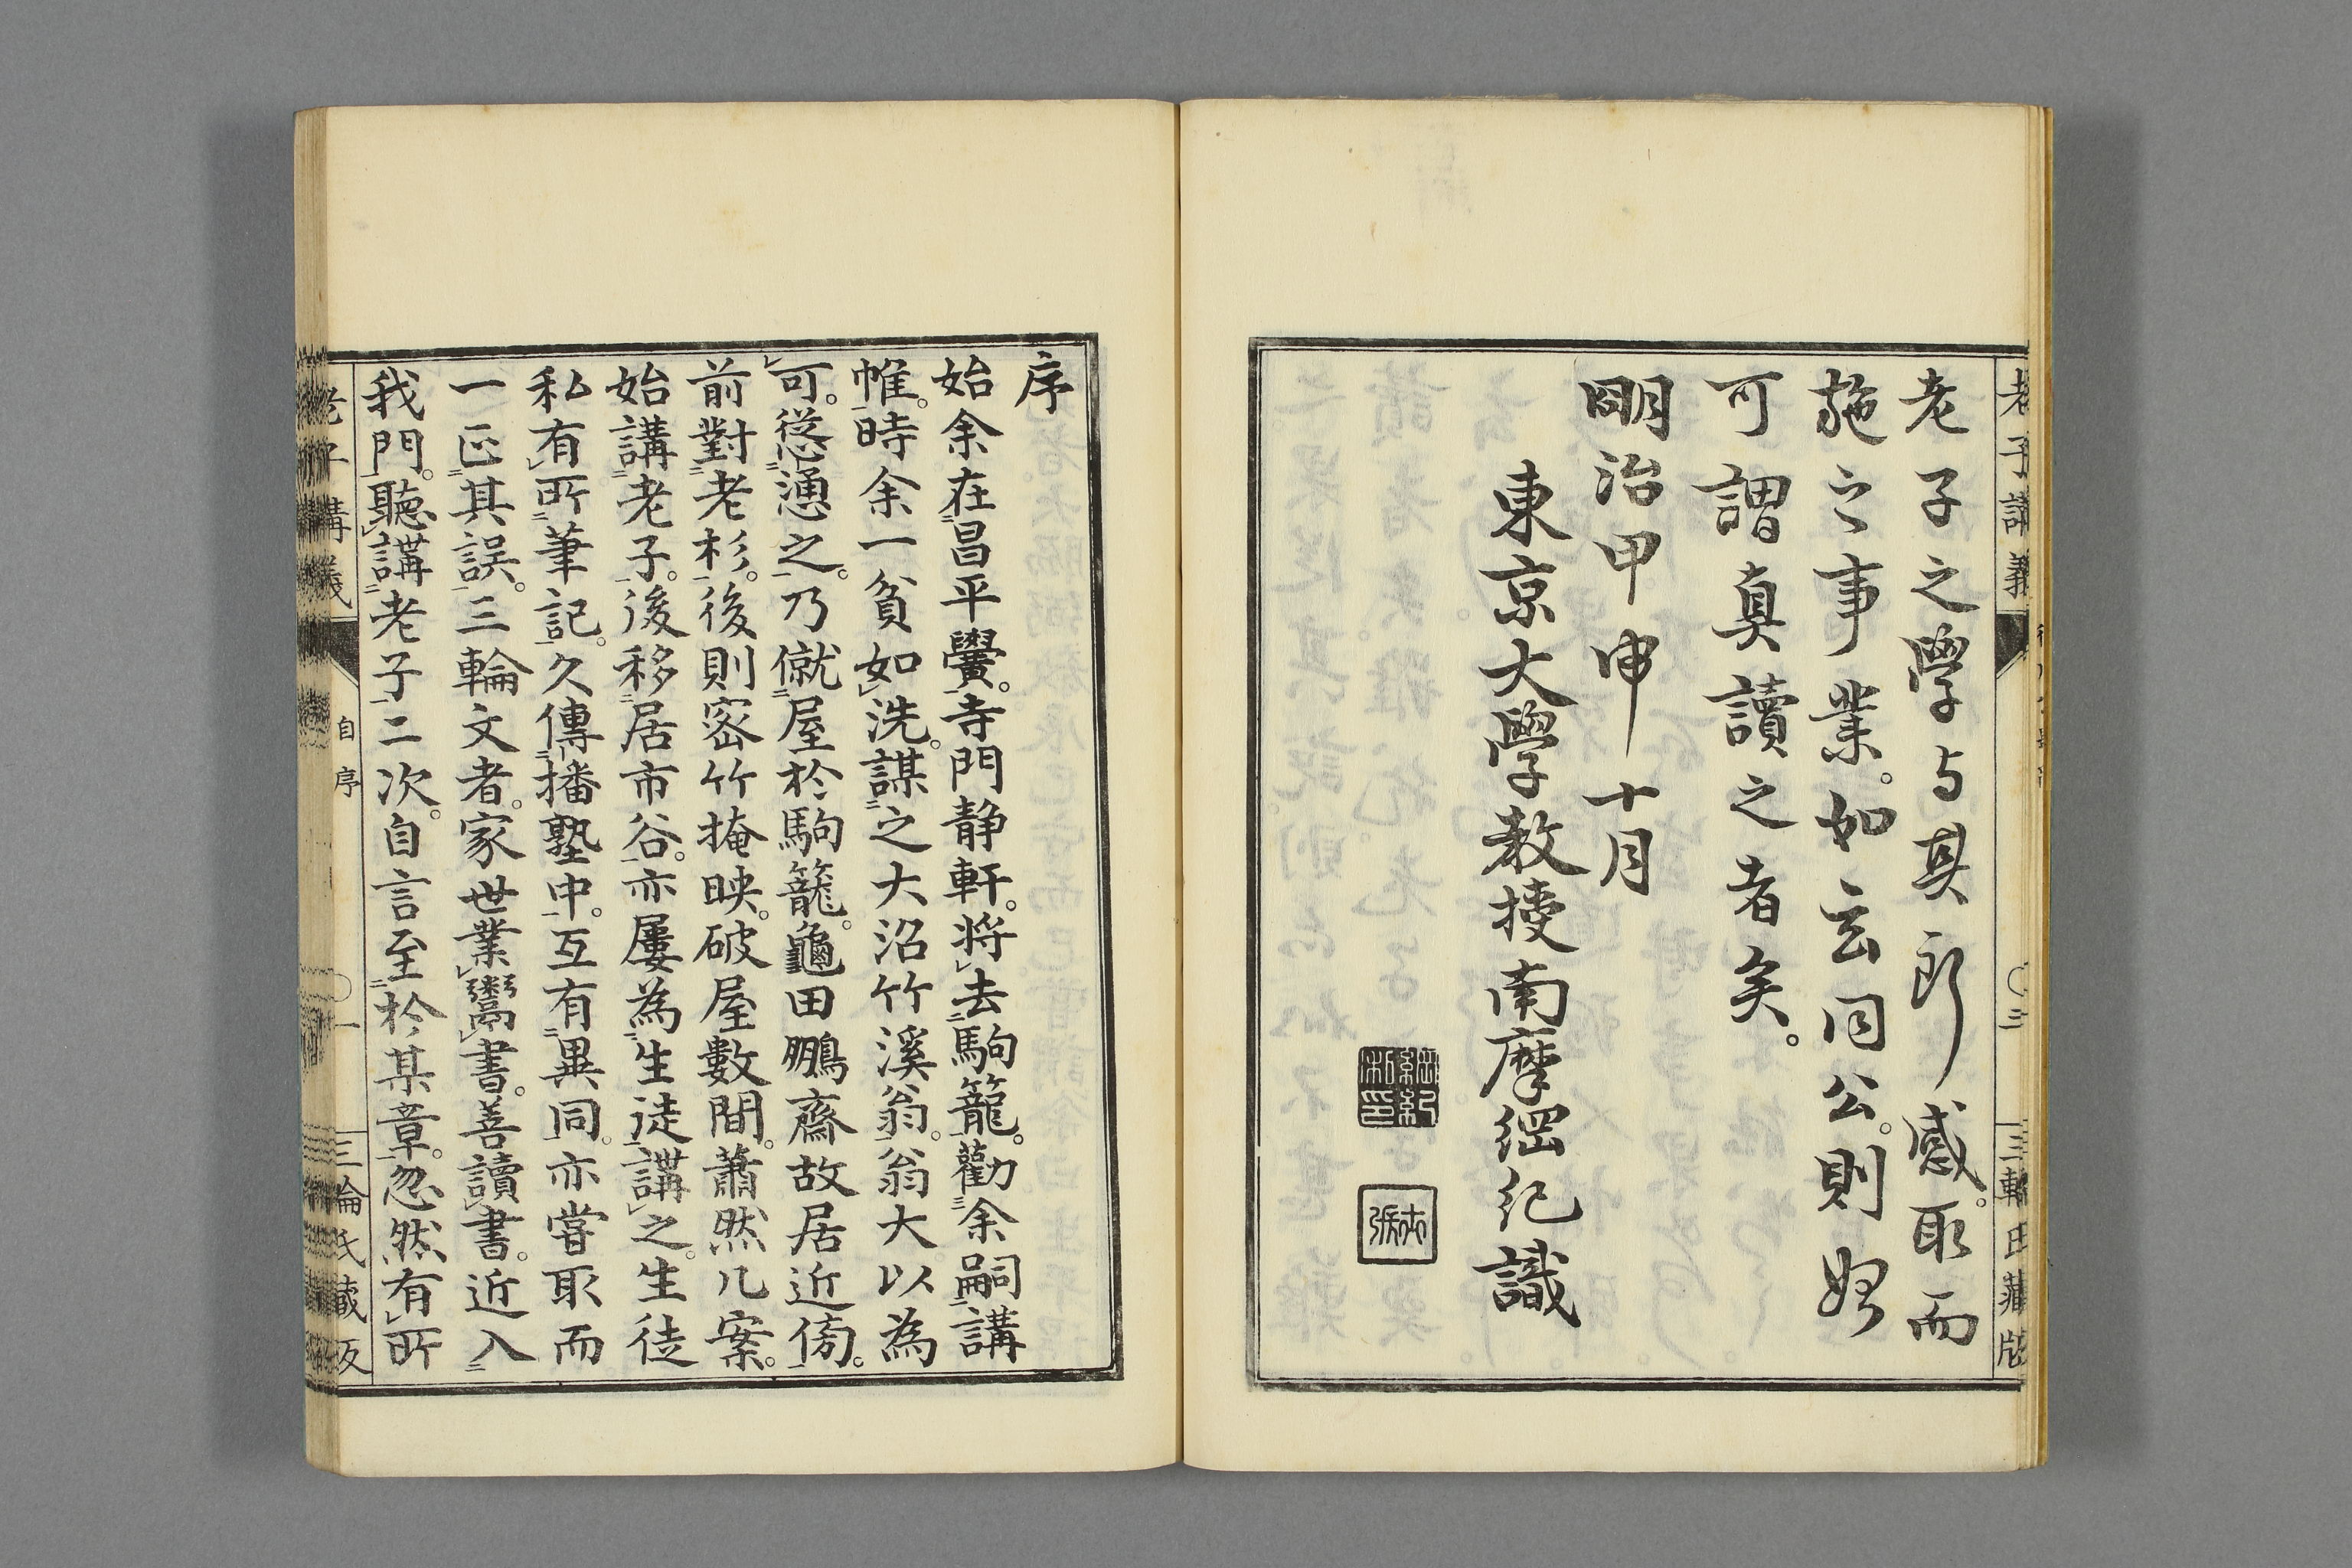 老子之學与其所感。取而
施之事業。如玄同公。則
可謂真讀之者矣。
明治甲申十月
東京大學教授南摩綱紀識
老子講義
〇三
三輪氏藏
序
始余在昌平黌。寺門静軒。将去駒籠。勸余嗣講
帷。時余一貧如洗。謀之大沼竹溪翁。翁大以為
可。慫慂之。乃僦屋於駒籠。龜田鵬齋故居近傍。
前對老杉。後則密竹掩映。破屋數間。蕭然几案。
始講老子。後移居市谷。亦屢為生徒講之。生徒
私有所筆記。久傳播塾中。互有異同。亦嘗取而
一正其誤。三輪文者。家世業鬻書。善讀書。近入
我門。聽講老子二次。自言至於某章。忽然有所
老子講義
自序
〇一
三輪氏藏版